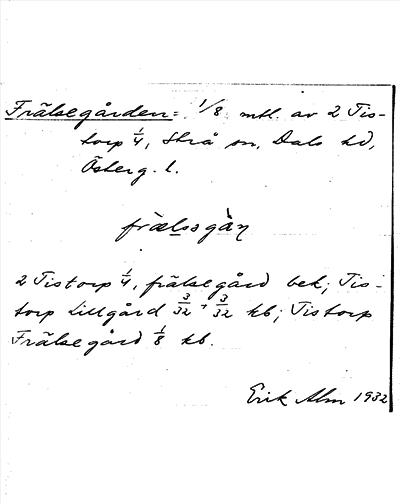 Frälsegården = 1/8 mtl. av 2 Tis-
torp 1/4, Strå sn, Dals hd,
Österg. l.
frælsgån
2 Tistorp 1/4, frälsegård bek; Tis-
torp Lillgård 3/32 + 3/32 kb; Tistorp
Frälsegård 1/8 kb.
Erik Alm 1932